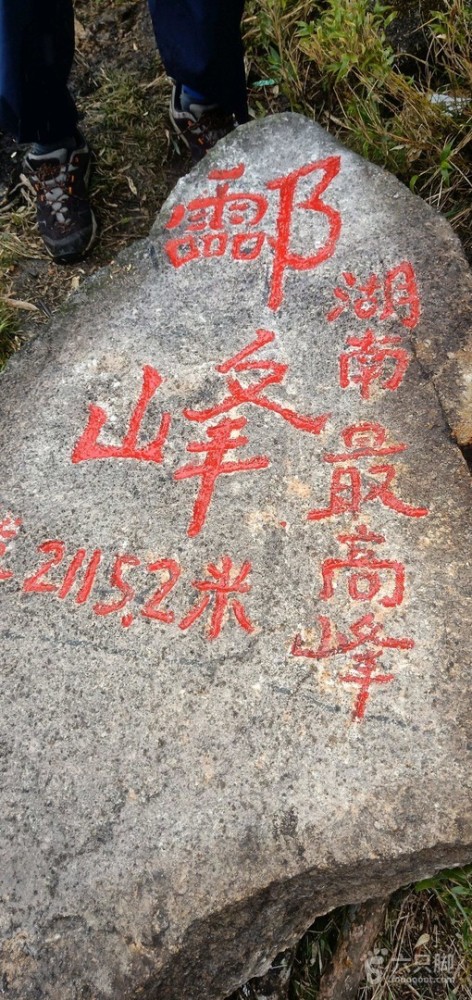 酃峰
湖南最高峰
2115.2米
六只脚